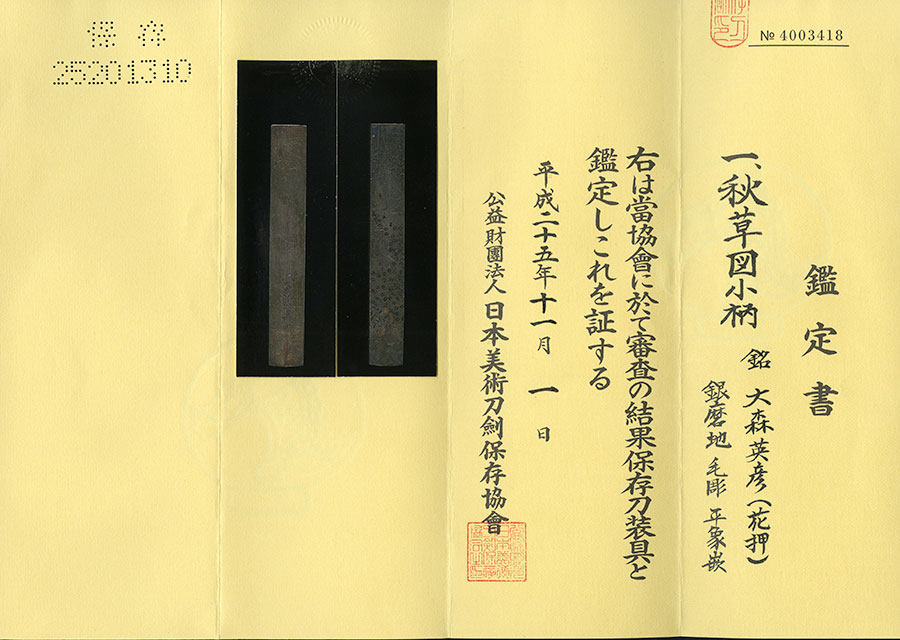 № 4003418
鑑定書
一、秋草図小柄
銘 大森英彦(花押)
銀磨地 毛彫 平象嵌
右は當協會に於て審査の結果保存刀装具と
鑑定しこれを証する
平成二十五年十一月 一 日
公益財團法人 日本美術刀劍保存協會
保存
25201310